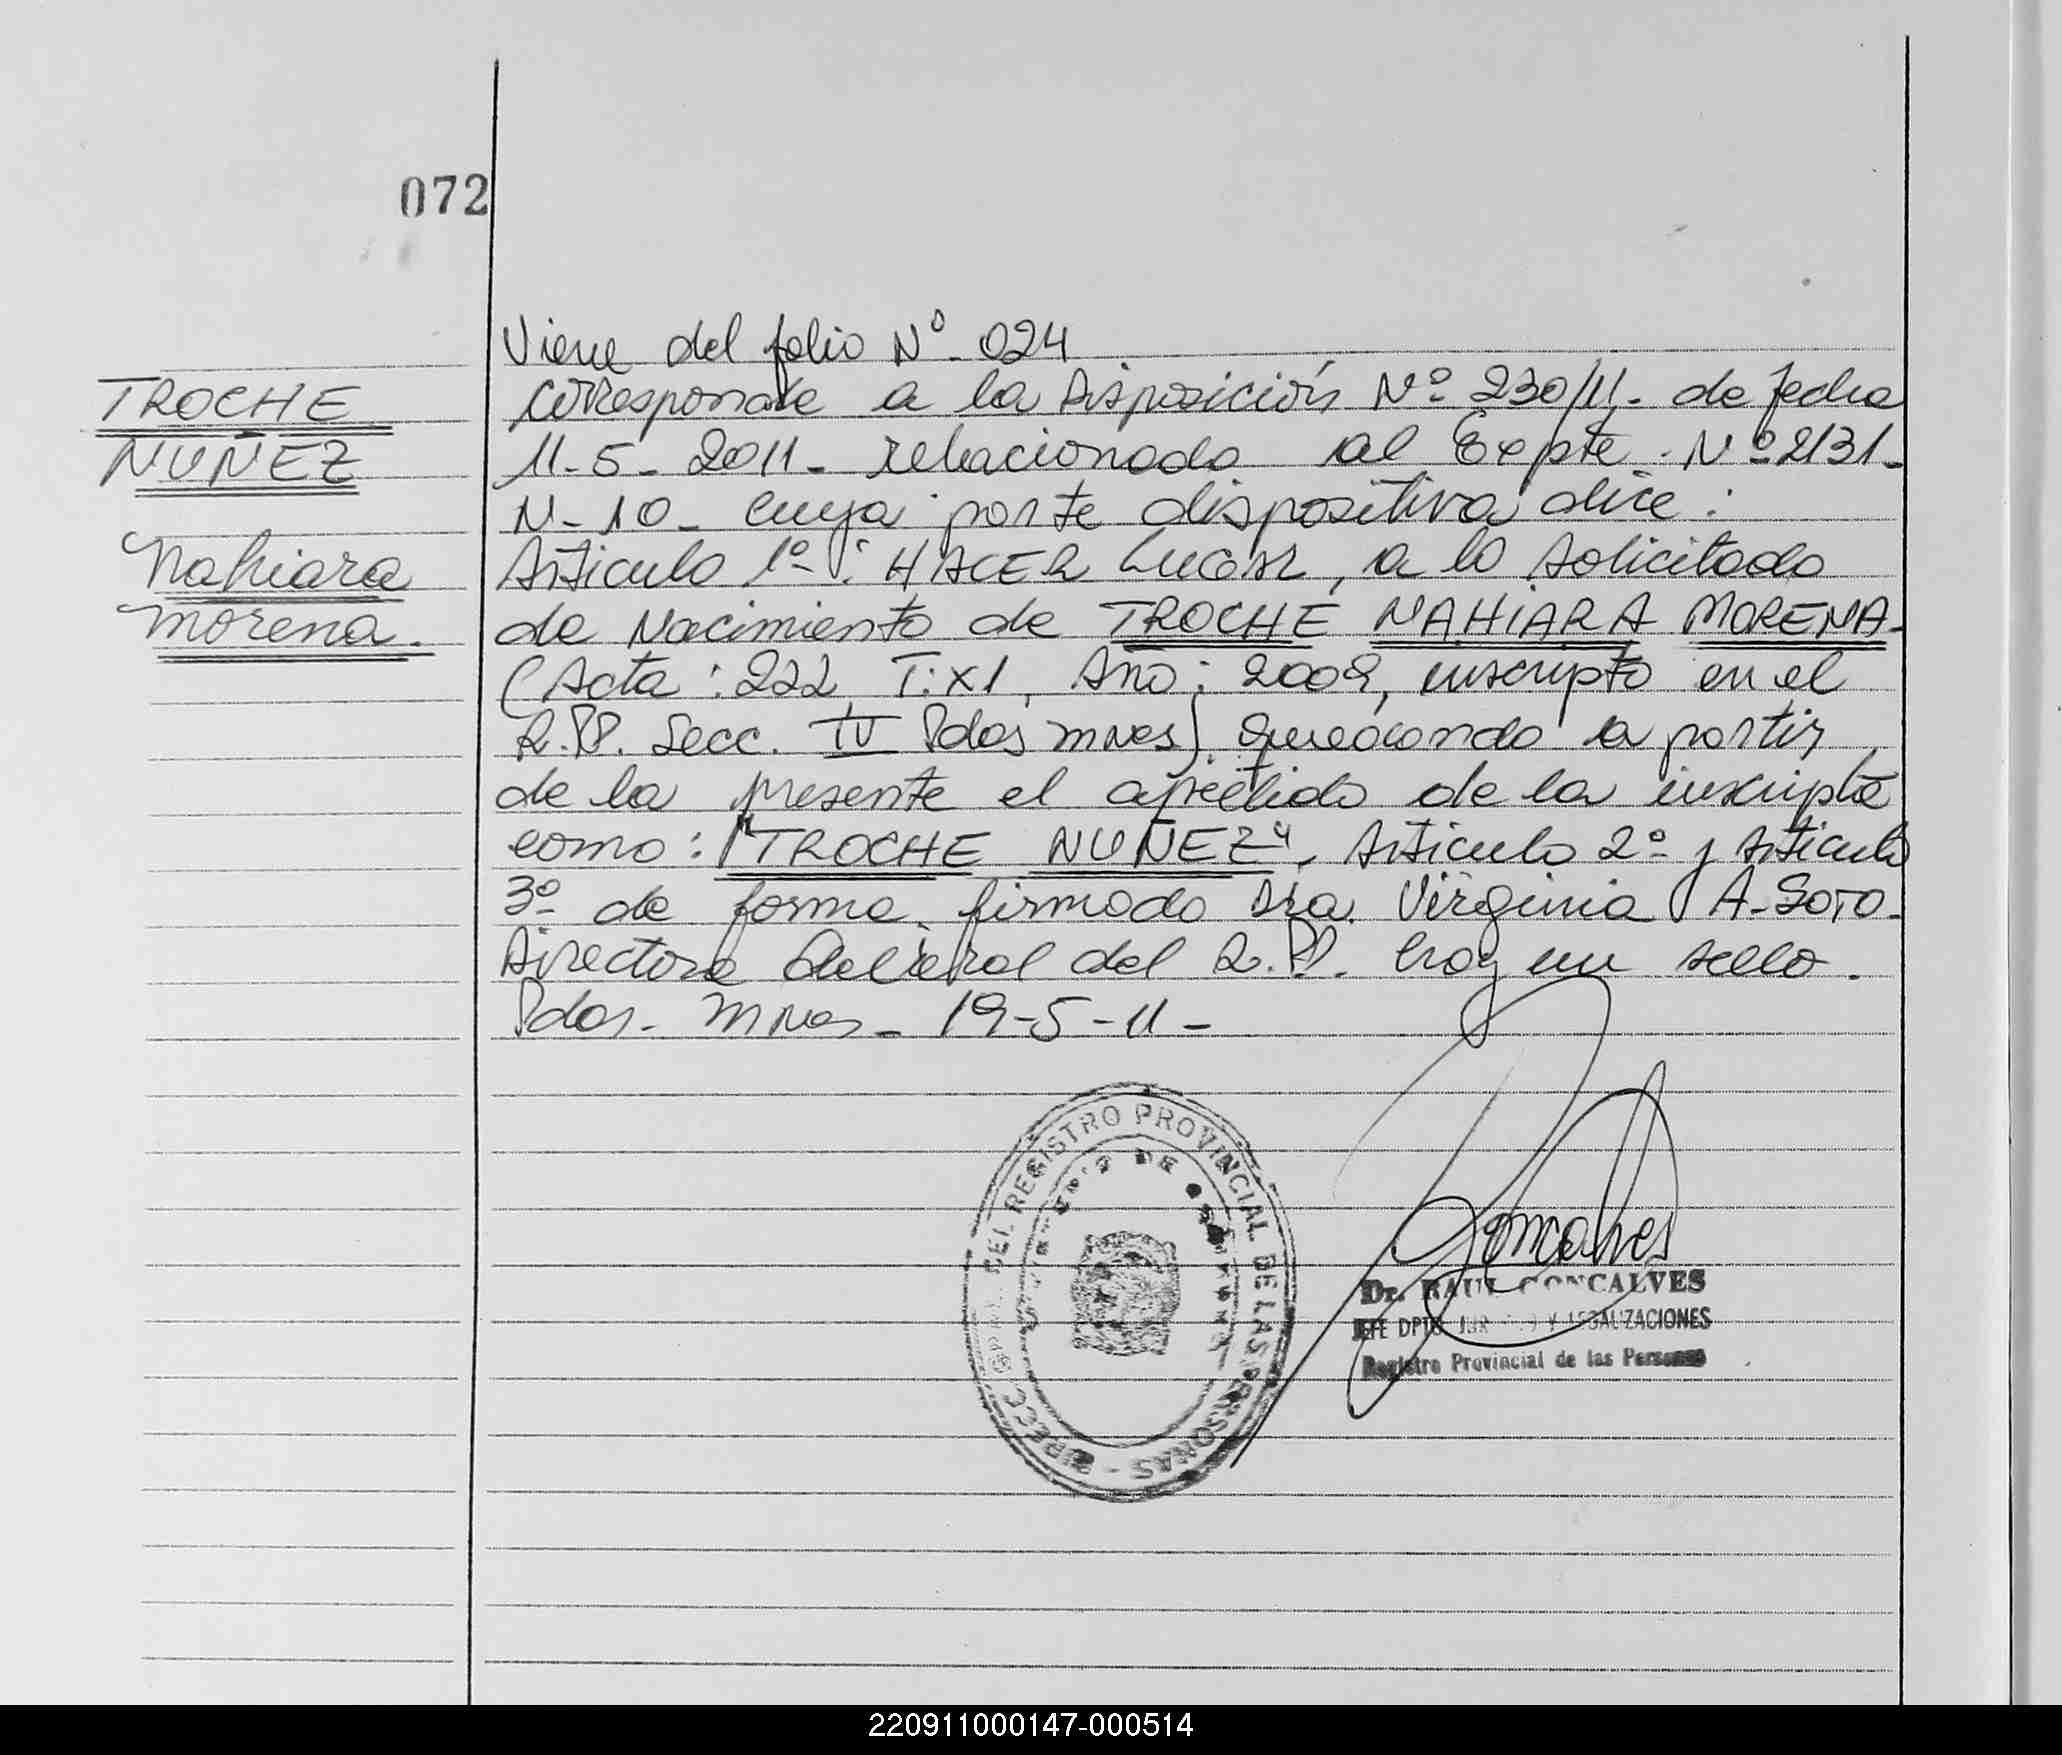 072
Viene del folio Nº 024
TROCHE
NUÑEZ
Nahiara
Morena.
corresponde a la Disposición Nº 230/11.- de fecha
11-5-2011- relacionado al Expte. Nº 2131-
N-10- cuya parte dispositiva dice:
Articulo 1º: HACER Lugar, a lo solicitado
de Nacimiento de TROCHE NAHIARA MORENA-
(Acta: 222 T: XI, Año: 2009, inscripto en el
R.PP. Secc. IV Pdas Mnes). quedando a partir
de la presente el apellido de la inscripta
como: "TROCHE NUÑEZ", Articulo 2º y Articulo
3º de forma, firmado Dra. Virginia A. SOTO-
Directora General del R.PP. hay un sello.
Pdas. Mnes- 19-5-11-
DIRECC. GRAL. DEL REGISTRO PROVINCIAL DE LAS PERSONAS
Goncalves
Dr. RAUL GONCALVES
JEFE DPTO. Y LEGALIZACIONES
Registro Provincial de las Personas
220911000147-000514